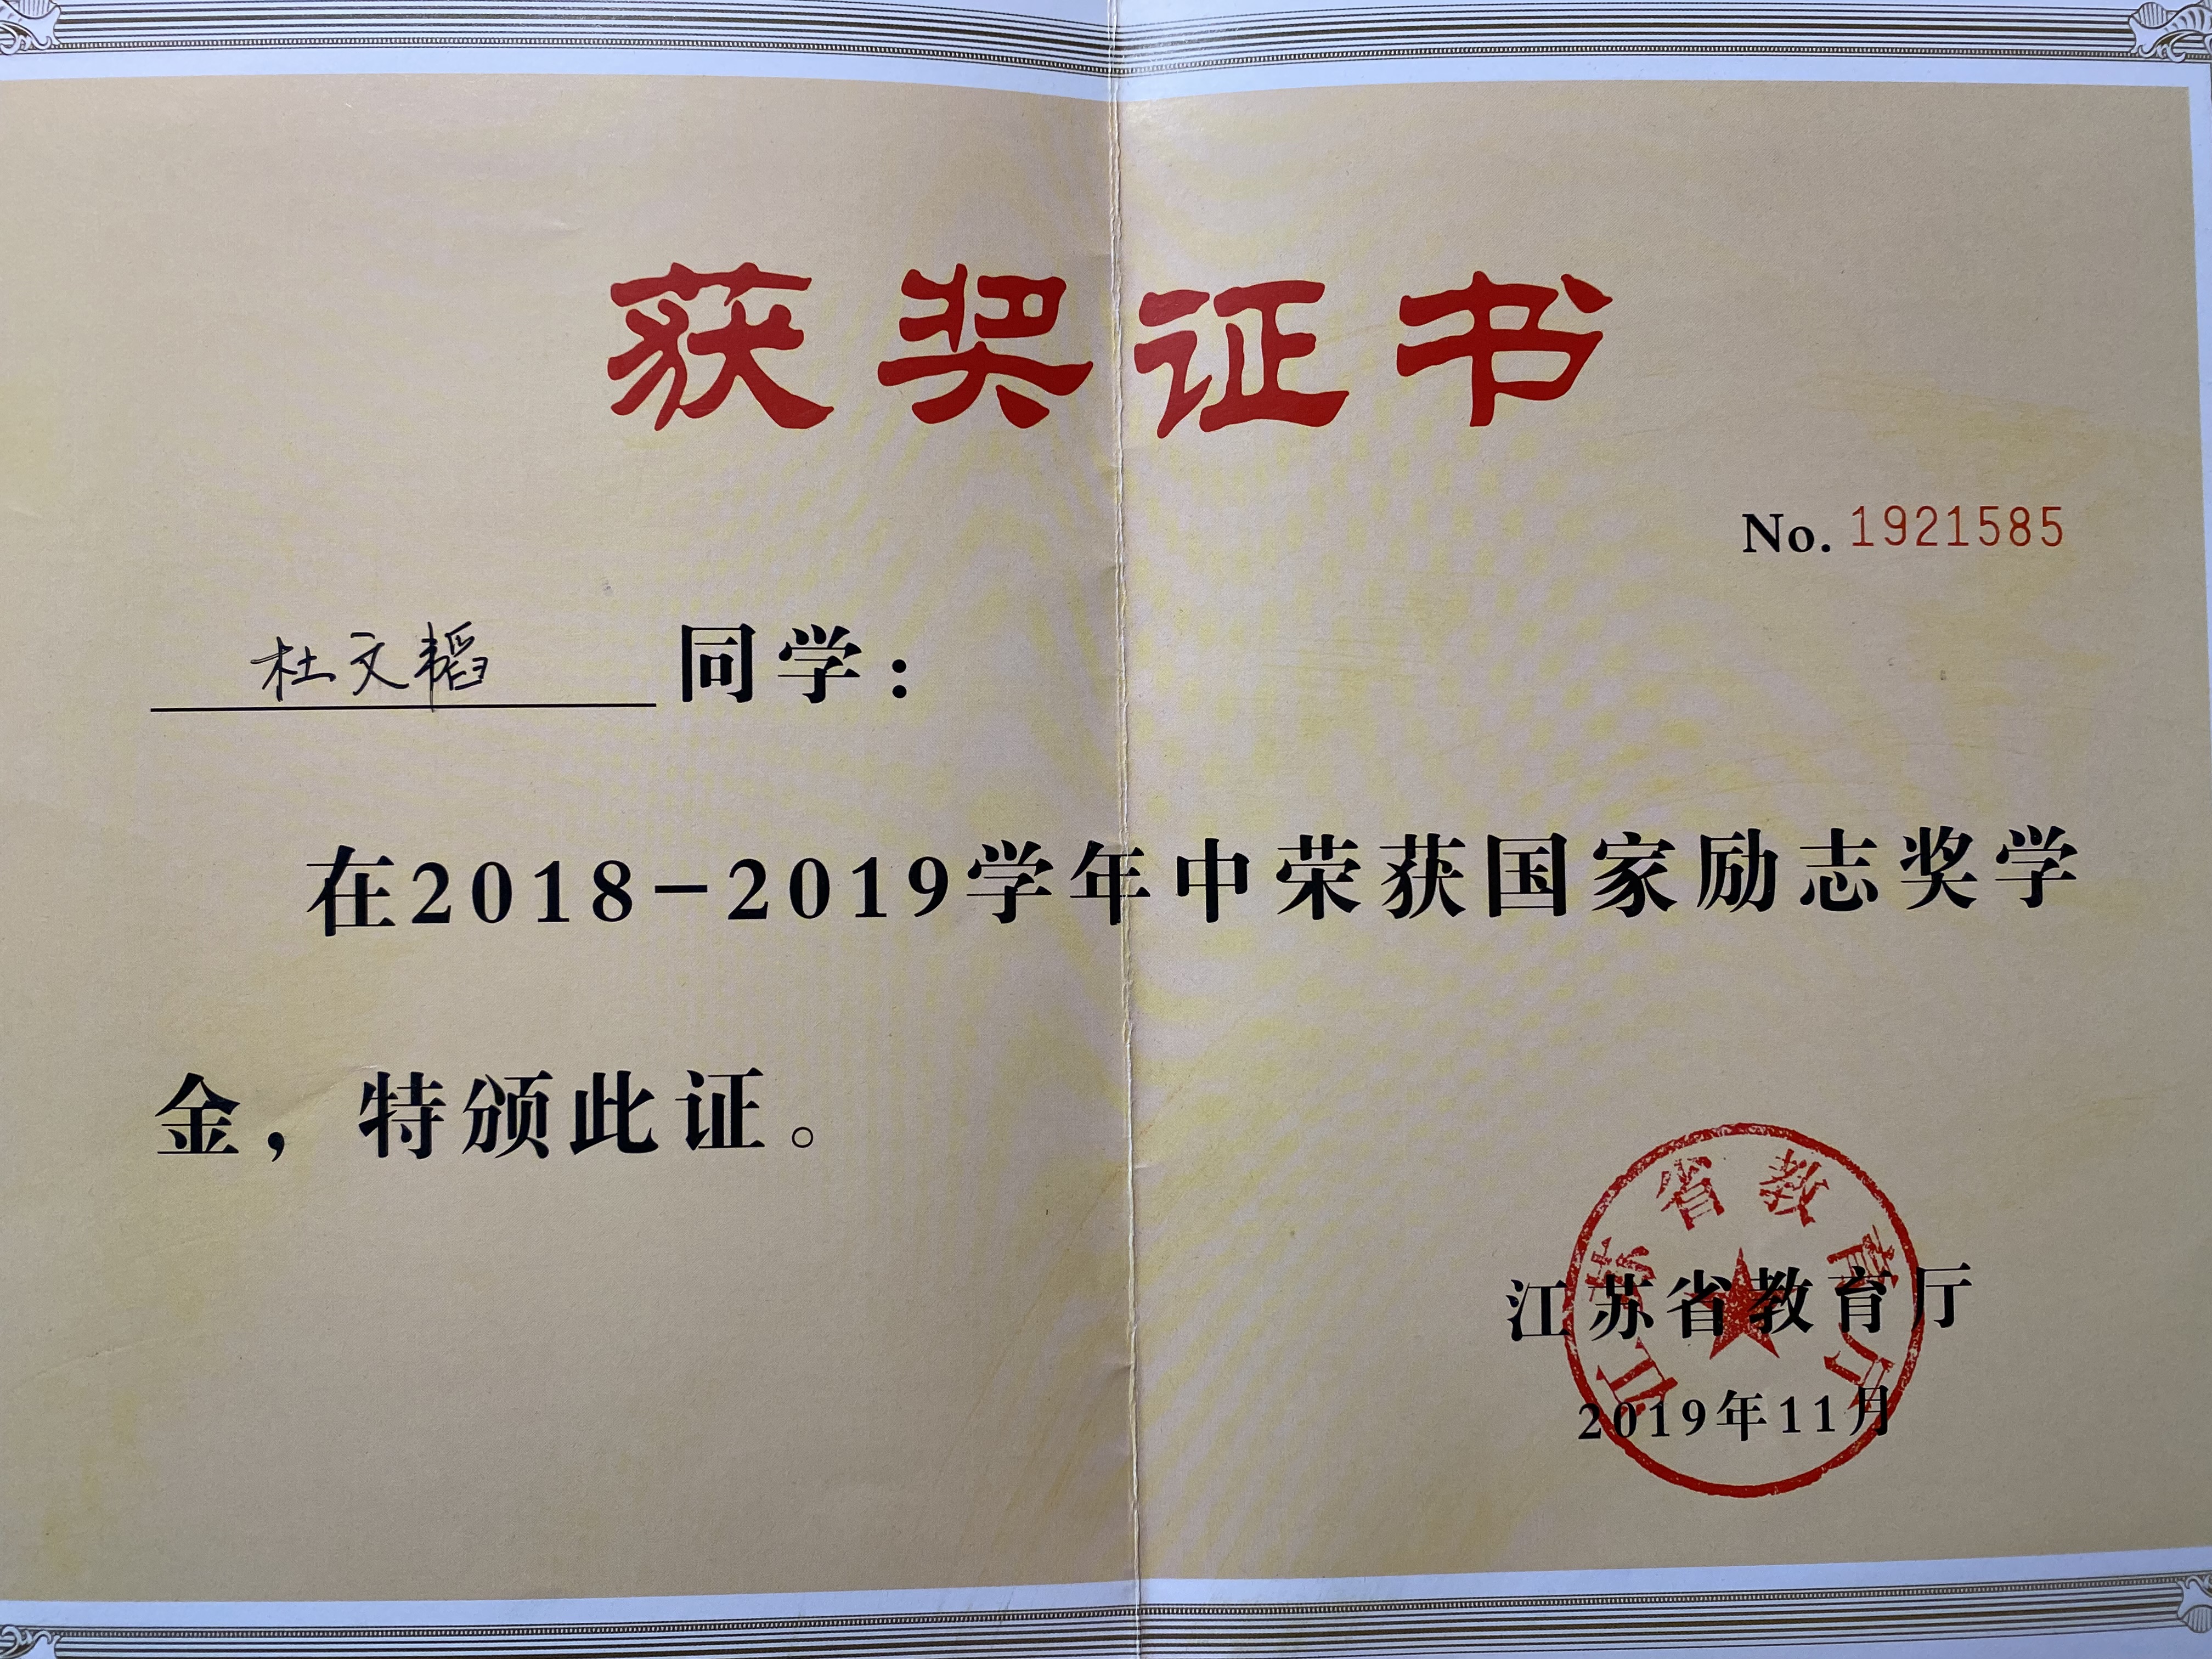 获奖证书
No.1921585
杜文韬 同学：
在2018-2019学年中荣获国家励志奖学
金，特颁此证。
江苏省教育厅
2019年11月
江苏省教育厅